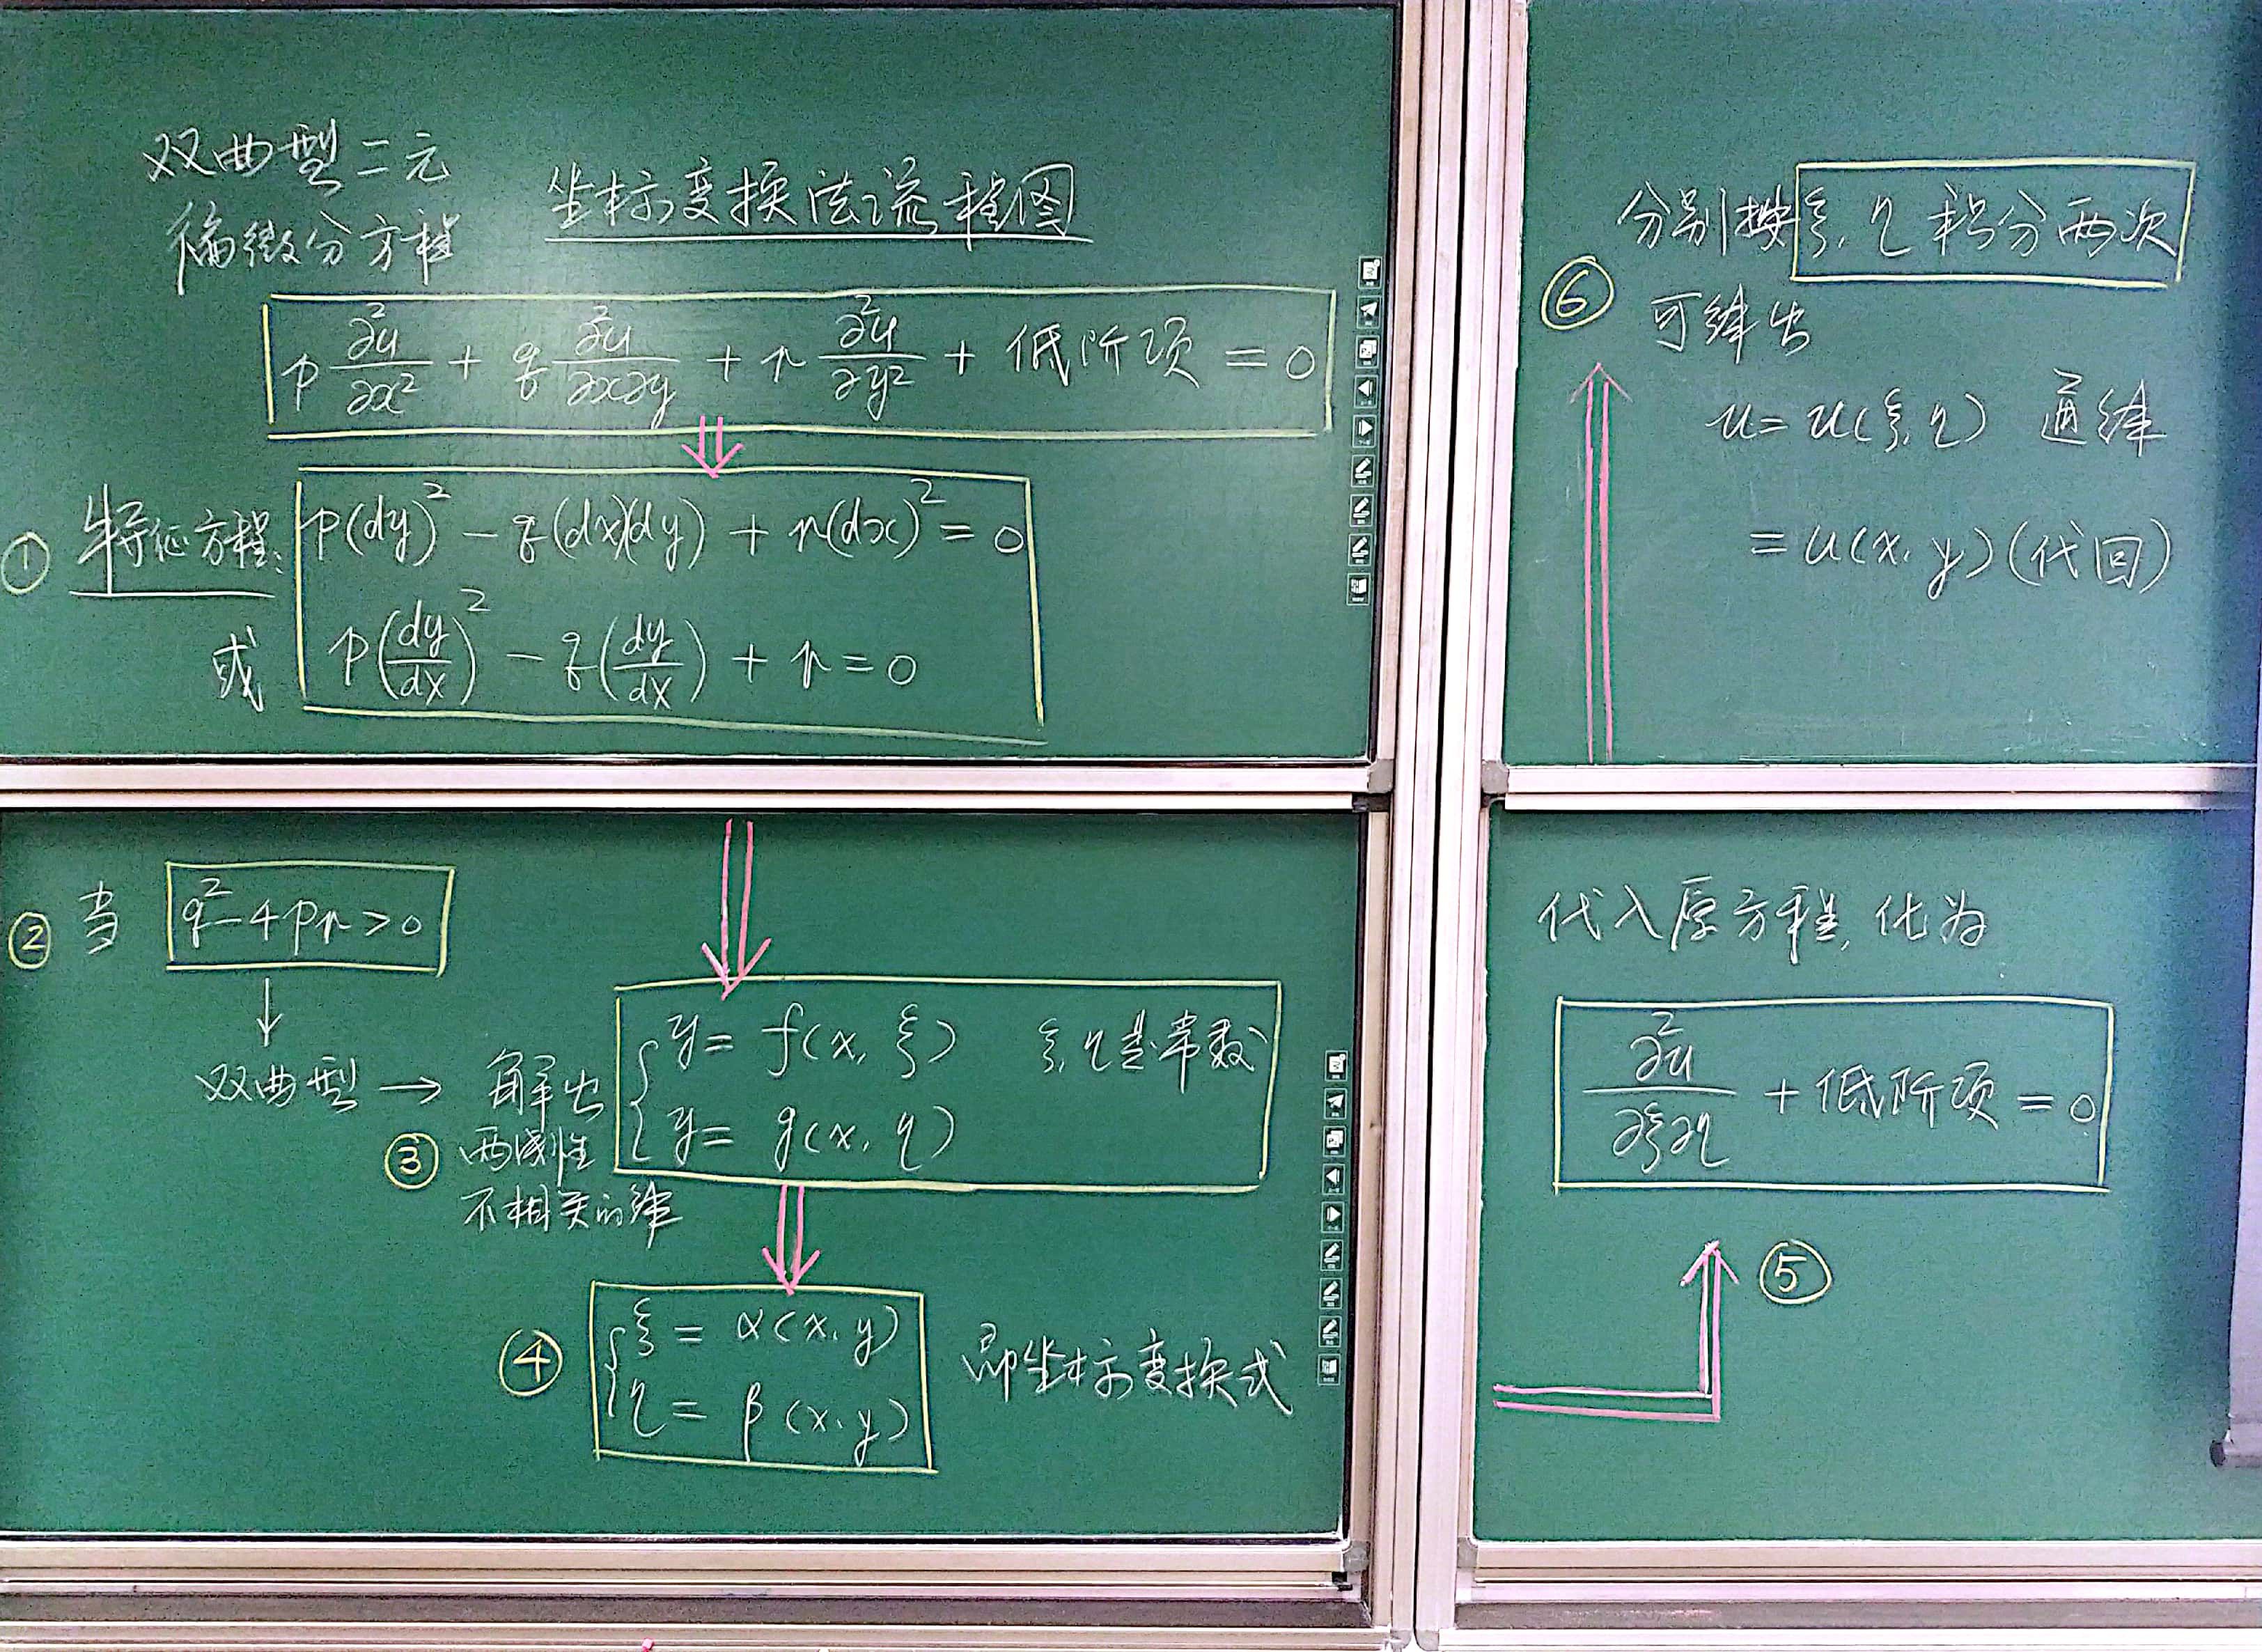 双曲型二元
偏微分方程
坐标变换法流程图
p ∂²u/∂x² + q ∂²u/∂x∂y + r ∂²u/∂y² + 低阶项 = 0
① 特征方程: p(dy)² - q(dx)(dy) + r(dx)² = 0
或 p(dy/dx)² - q(dy/dx) + r = 0
② 当 q² - 4pr > 0
↓
双曲型 → 解出
③ 两线性
不相关的解
{ y = f(x, ξ) ξ, η是常数
y = g(x, η)
④ { ξ = α(x, y)
η = β(x, y)
即坐标变换式
代入原方程, 化为
∂²u/∂ξ∂η + 低阶项 = 0
⑤
分别按ξ, η 积分两次
⑥ 可解出
u = u(ξ, η) 通解
= u(x, y) (代回)